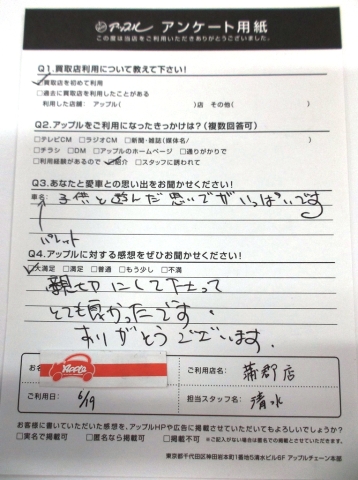 アップル アンケート用紙
この度は当店をご利用いただきありがとうございました。
Q1.買取店利用について教えて下さい!
□買取店を初めて利用
□過去に買取店を利用したことがある
利用した店舗: アップル( )店 その他( )
Q2.アップルをご利用になったきっかけは?(複数回答可)
□テレビCM □ラジオCM □新聞・雑誌(媒体名/ )
□チラシ □DM □アップルのホームページ □通りがかりで
□利用経験があるので □ご紹介 □スタッフに誘われて
Q3.あなたと愛車との思い出をお聞かせください!
車名: 子供と遊んだ思いでがいっぱいです
パレット
Q4.アップルに対する感想をぜひお聞かせください!
□大満足 □満足 □普通 □もう少し □不満
親切にして下さって
とても良かったです.
ありがとうございます.
お名 Apple
ご利用店名: 蒲郡店
ご利用日: 6/19
担当スタッフ名: 清水
お客様に書いていただいた感想を、アップルHPや広告に掲載させていただいてもよろしいでしょうか?
□実名で掲載可 □匿名なら掲載可 □掲載不可 ※ご記入がない場合は匿名での掲載とさせていただきます。
東京都千代田区神田岩本町1番地5清水ビル6F アップルチェーン本部